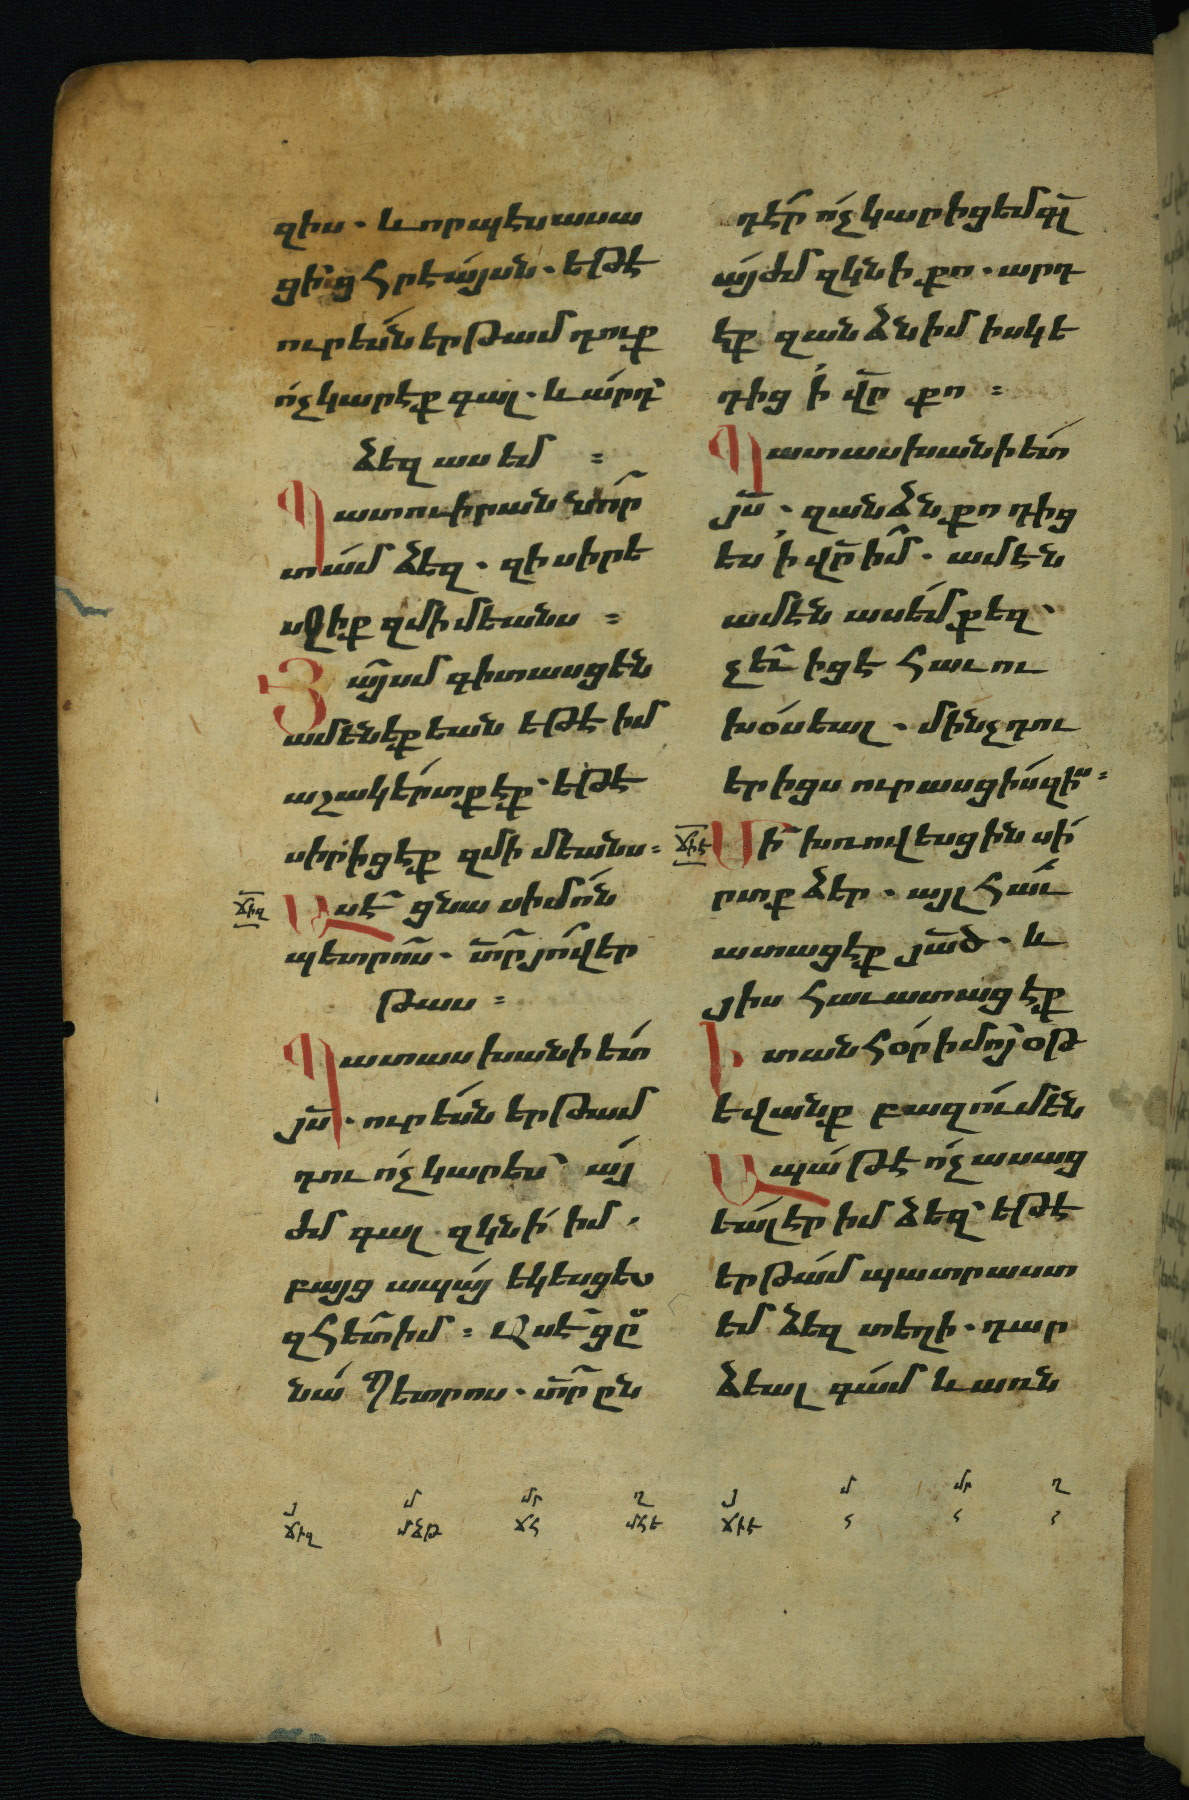 զիս. և որպէս ասա
ցի՛ց հրէայսն. եթէ
ուր ես՛ն երթամ դուք
ո՛չ կարէք գալ. և ա՛րդ՝
ձեզ ասեմ :
Պատուիրան նո՛ր
տա՛մ ձեզ. զի սիրե
սջիք զմիմեանս :
Յայսմ գիտասցեն
ամենեքեան եթէ իմ
աշակե՛րտք էք՝ եթէ
սիրիցէք զմիմեանս :
ճիզ
Ասէ ցնա սիմո՛ն
պետրոս. տր յո՛ վեր
թաս :
Պատասխանի ետ
յս. ուր ես՛ն երթամ
դու ո՛չ կարես՝ այ
ժմ գալ զկնի իմ.
բայց ապա՛յ եկեսցես
զհետ իմ : Ասէ ցը
նա՛ Պետրոս. տր ըն
դէ՛ր ո՛չ կարիցեմ գլ
այժմ զկնի քո. արդ
էք զանձն իմ իսկ ե
դից ի վր քո :
Պատասխանի ետ
յս. զանձն քո դից
ես ի վր իմ. ամէն
ամէն ասեմ քեզ՝
չեւ իցէ հաւու
խօսեալ. մինչ դու
երիցս ուրասցիս զիս :
ճիէ
Մի խռովեսցին սի
րտք ձեր. այլ հաւ
ատացէք յած. և
յիս հաւատացէք
Ի տան հօր իմոյ օթ
եվանք բազում են
Ապա՛ թէ ո՛չ ասաց
եա՛լ էր իմ ձեզ՝ եթէ
երթա՛մ պատրաստ
եմ ձեզ տեղի. դար
ձեալ գա՛մ և առն
յ մ մր ղ յ մ մր ղ
ճիզ մճթ ճհ մհե ճիէ